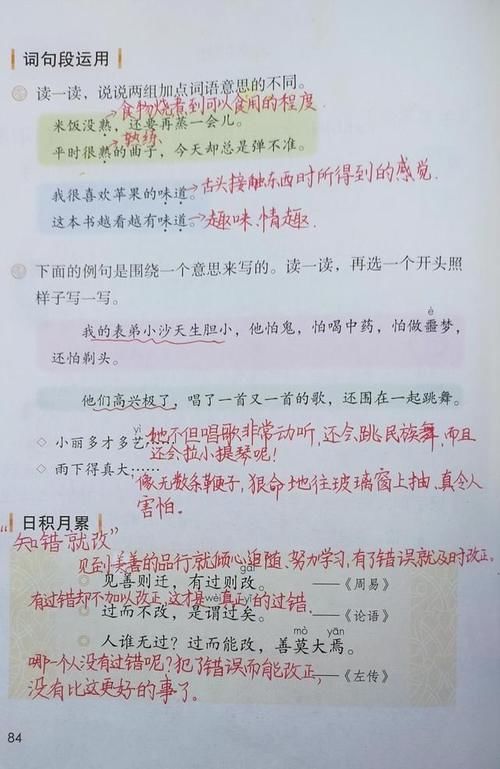 词句段运用
读一读，说说两组加点词语意思的不同。
食物烧煮到可以食用的程度.
米饭没熟，还要再蒸一会儿。
熟练
平时很熟的曲子，今天却总是弹不准。
我很喜欢苹果的味道。舌头接触东西时所得到的感觉.
这本书越看越有味道。趣味、情趣.
下面的例句是围绕一个意思来写的。读一读，再选一个开头照
样子写一写。
è
我的表弟小沙天生胆小，他怕鬼，怕喝中药，怕做噩梦，
还怕剃头。
他们高兴极了，唱了一首又一首的歌，还围在一起跳舞。
yì
小丽多才多艺，她不但唱歌非常动听，还会跳民族舞，而且
还会拉小提琴呢！
雨下得真大……
像无数条鞭子，狠命地往玻璃窗上抽，真令人
害怕.
日积月累
“知错就改”
见到美善的品行就倾心追随、努力学习，有了错误就及时改正.
gǎi
见善则迁，有过则改。 ——《周易》
有过错却不加以改正，这才是真正的过错.
yǐ
过而不改，是谓过矣。 ——《论语》
mò yān
人谁无过？过而能改，善莫大焉。
——《左传》
哪一个人没有过错呢？犯了错误而能改正，
没有比这更好的事了。
84